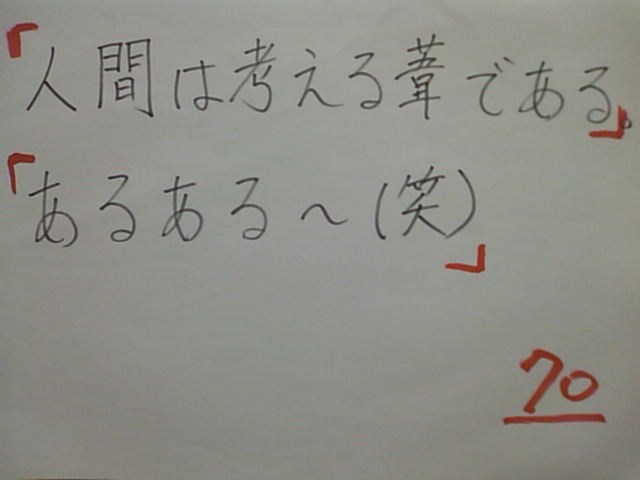 「人間は考える葦である。」
「あるある～(笑)」
70